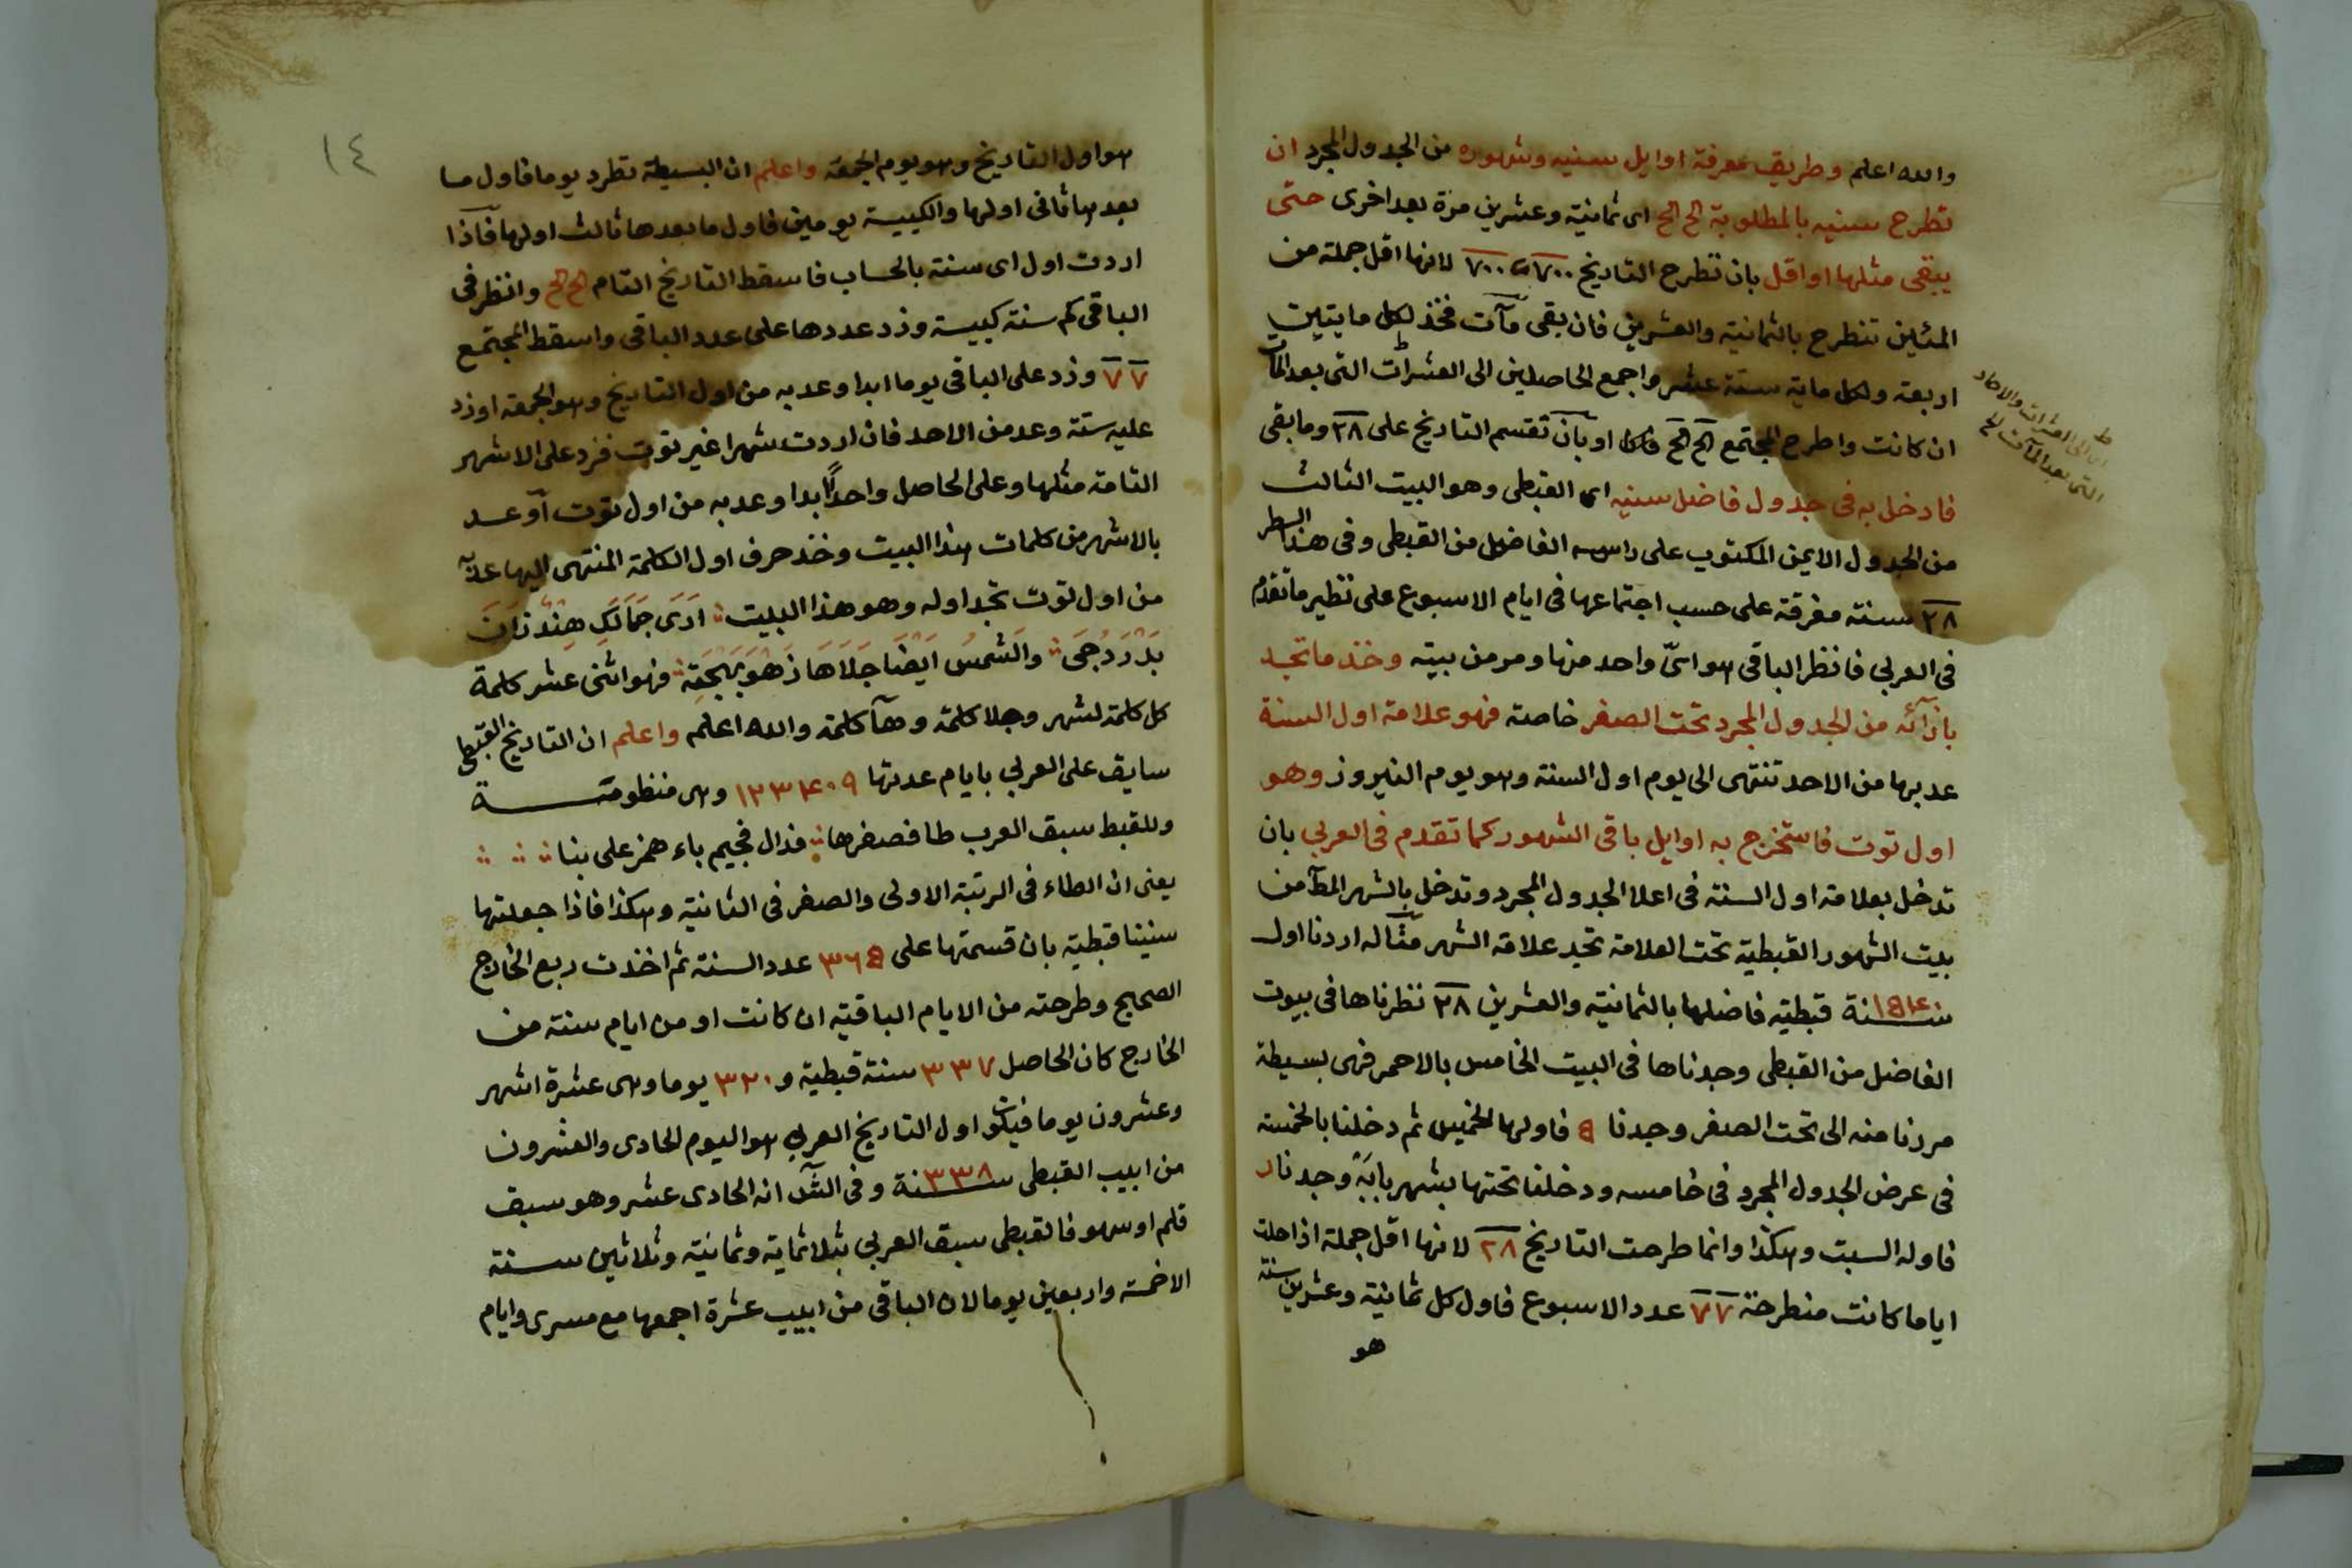 والله اعلم وطريق معرفة اوايل سنيه وشهوره من الجدول المجرد ان
تطرح سنيه بالمطلوبة كح كح اى ثمانية وعشرين مرة بعد اخرى حتى
يبقى مثلها او اقل بان تطرح التاريخ ٧٠٠ ٧٠٠ لانها اقل جملة من
المئين تنطرح بالثمانية والعشرين فان بقى مآت فخذ لكل مايتين
اربعة ولكل ماية ستة عشر واجمع الحاصلين الى العشرات التى بعد المآت
ان كانت واطرح المجتمع كح كح فكك او بان تقسم التاريخ على ٢٨ وما بقى
فادخل به فى جدول فاضل سنيه اى القبطى وهو البيت الثالث
من الجدول الايمن المكتوب على راسه الفاضل من القبطى وفى هذا السطر
٢٨ سنة مفرقة على حسب اجتماعها فى ايام الاسبوع على نظير ما تقدم
فى العربى فانظر الباقى هو اىّ واحد منها ومر من بيته وخذ ما تجد
بازآئه من الجدول المجرد تحت الصفر خاصة فهو علامة اول السنة
عد بها من الاحد تنتهى الى يوم اول السنة وهو يوم النيروز وهو
اول توت فاستخرج به اوايل باقى الشهور كما تقدم فى العربى بان
تدخل بعلامة اول السنة فى اعلا الجدول المجرد وتدخل بالشهر المط من
بيت الشهور القبطية تحت العلامة تجد علامة الشهر مثاله اردنا اول
سنة ١٥٤٠ قبطية فاضلها بالثمانية والعشرين ٢٨ نظرناها فى بيوت
الفاضل من القبطى وجدناها فى البيت الخامس بالاحمر فهى بسيطة
مررنا منه الى تحت الصفر وجدنا ٥ فاولها الخميس ثم دخلنا بالخمسة
فى عرض الجدول المجرد فى خامسه ودخلنا تحتها بشهر بابة وجدنا
فاوله السبت وهكذا وانما طرحت التاريخ ٢٨ لانها اقل جملة اذا حلت
اياما كانت منطرحة ٧ ٧ عدد الاسبوع فاول كل ثمانية وعشرين سنة
هو
الى العشرات والاحاد
التى بعد المآت
١٤
هو اول التاريخ وهو يوم الجمعة واعلم ان البسيطة تطرد يوما فاول ما
بعدها ثانى اولها والكبيسة يومين فاول ما بعدها ثالث اولها فاذا
اردت اول اى سنة بالحساب فاسقط التاريخ التام كح كح وانظر فى
الباقى كم سنة كبيسة وزد عددها على عدد الباقى واسقط المجتمع
٧ ٧ وزد على الباقى يوما ابدا وعد به من اول التاريخ وهو الجمعة او زد
عليه ستة وعد من الاحد فان اردت شهرا غير توت فزد على الاشهر
التامة مثلها وعلى الحاصل واحدًا ابدا وعد به من اول توت او عد
بالاشهر من كلمات هذا البيت وخذ حرف اول الكلمة المنتهى اليها عدّ به
من اول توت تجد اوله وهو هذا البيت اَرَى جَمَالَكِ هِنْدٌ زَانَ
بَدْرَ دُجَى والشمسُ ايضا جَلَاهَا زَهْوَ بَهْجَة فهو اثنى عشر كلمة
كل كلمة لشهر وجلا كلمة وهآ كلمة والله اعلم واعلم ان التاريخ القبطى
سابق على العربى بايام عدتها ١٢٣٤٠٩ وهى منظومة
وللقبط سبق العرب طا فصفرها فدال فجيم باء همز على بنا
يعنى ان الطاء فى الرتبة الاولى والصفر فى الثانية وهكذا فاذا جعلتها
سنينا قبطية بان قسمتها على ٣٦٥ عدد السنة ثم اخذت ربع الخارج
الصحيح وطرحته من الايام الباقية ان كانت او من ايام سنة من
الخارج كان الحاصل ٣٣٧ سنة قبطية و ٣٢٠ يوما وهى عشرة اشهر
وعشرون يوما فيكون اول التاريخ العربى هو اليوم الحادى والعشرون
من ابيب القبطى سنة ٣٣٨ وفى الش انه الحادى عشر وهو سبق
قلم او سهو فالقبطى سبق العربى بثلاثماية وثمانية وثلاثين سنة
الا خمسة واربعين يوما لان الباقى من ابيب عشرة اجمعها مع مسرى وايام